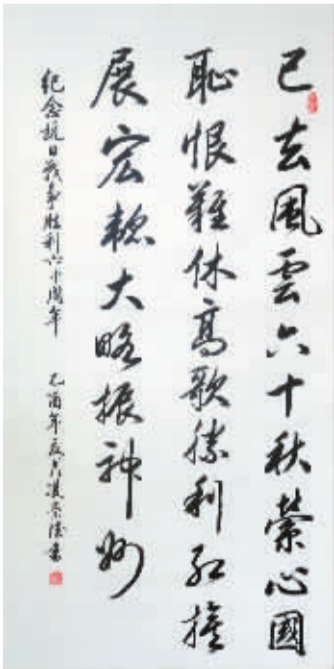 已去風雲六十秋縈心國
恥恨難休高歌勝利紅旗
展宏猷大略振神州
紀念抗日戰爭胜利六十周年 乙酉年夏書